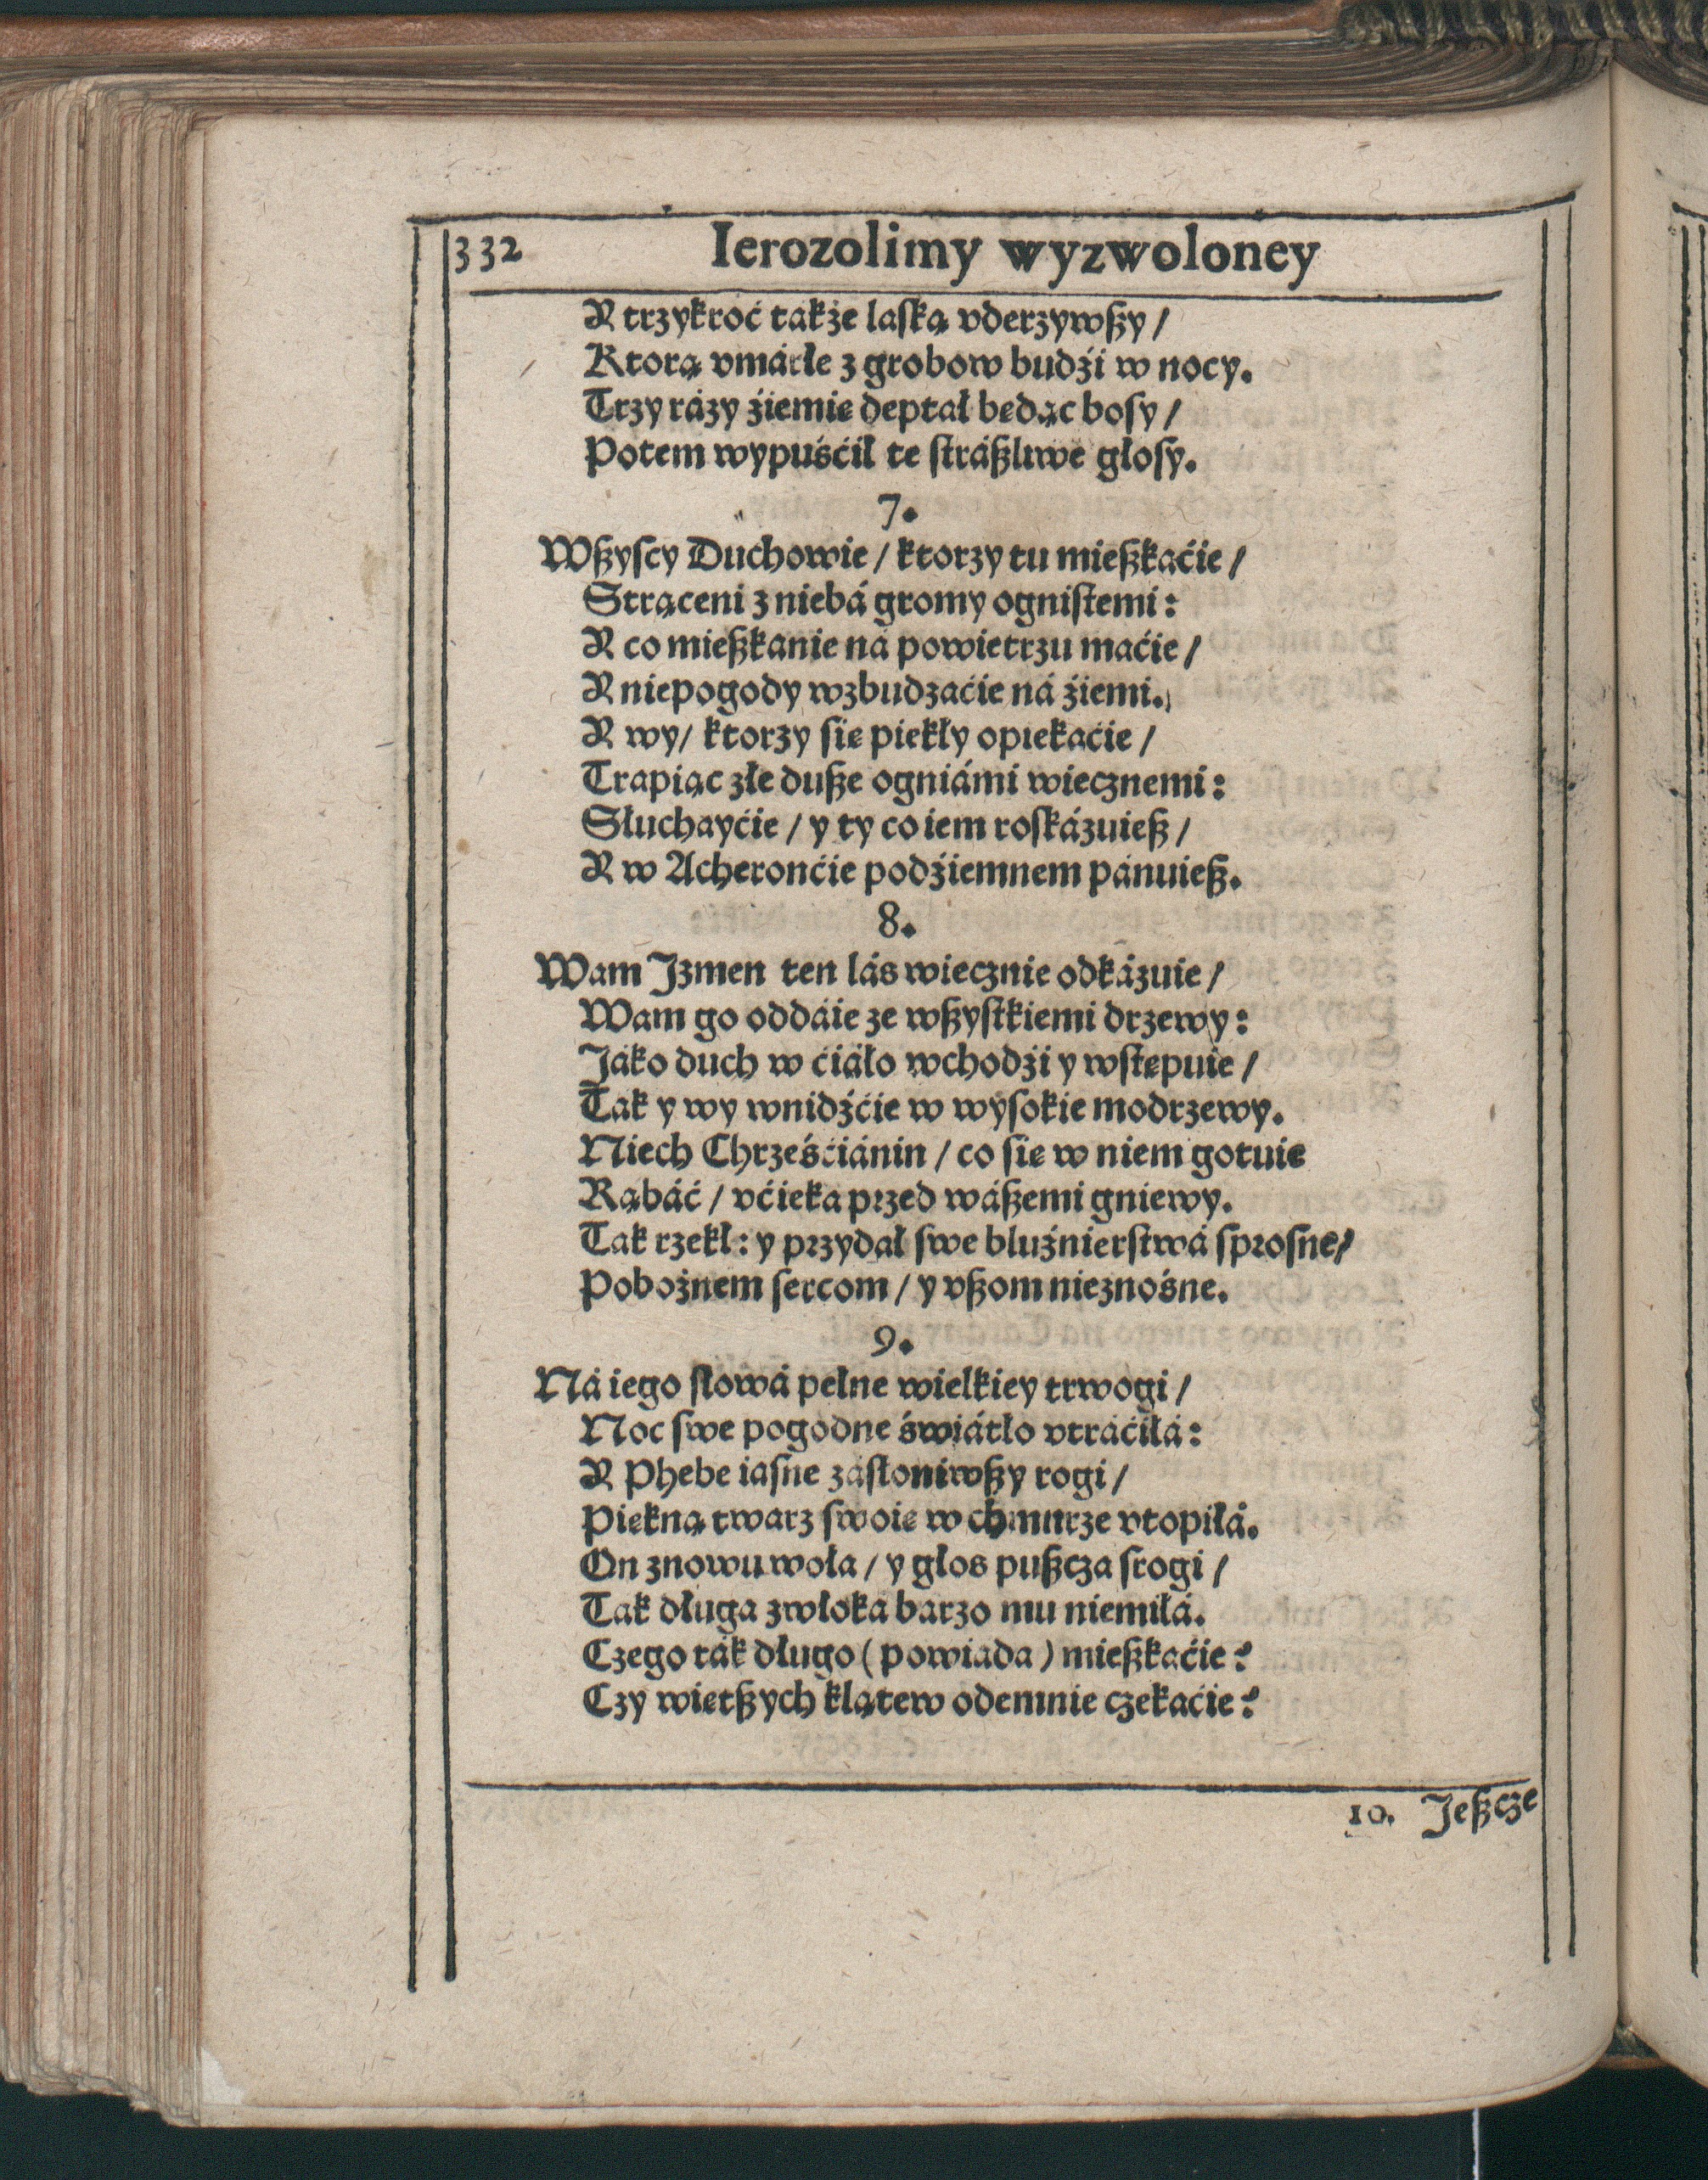 332 Ierozolimy wyzwoloney
Y trzykroć także laską vderzywßy /
Ktorą vmárłe z grobow budźi w nocy.
Trzy rázy źiemię deptał będąc bosy /
Potem wypuśćił te stráßliwe głosy.
7.
Wßyscy Duchowie / ktorzy tu mießkaćie /
Strąceni z niebá gromy ognistemi:
Y co mießkanie ná powietrzu maćie /
Y niepogody wzbudzaćie ná źiemi.
Y wy / ktorzy się piekły opiekaćie /
Trapiąc złe duße ogniámi wiecznemi:
Słuchayćie / y ty co iem roskázuieß /
Y w Acheronćie podźiemnem pánuieß.
8.
Wam Jzmen ten lás wiecznie odkázuie /
Wam go oddáie ze wßystkiemi drzewy:
Jáko duch w ćiáło wchodźi y wstępuie /
Tak y wy wnidźćie w wysokie modrzewy.
Niech Chrześćiánin / co się w niem gotuie
Rąbáć / vćieka przed wáßemi gniewy.
Tak rzekł: y przydał swe bluźnierstwá sprosne /
Pobożnem sercom / y vßom nieznośne.
9.
Ná iego słowá pełne wielkiey trwogi /
Noc swe pogodne świátło vtráćiłá:
Y Phebe iasne zásłoniwßy rogi /
Piękną twarz swoię w chmurze vtopiłá.
On znowu woła / y głos pußcza srogi /
Tak długa zwłoká barzo mu niemiłá.
Czego ták długo ( powiada ) mießkaćie?
Czy więtßych klątew odemnie czekaćie?
10. Jeßcze